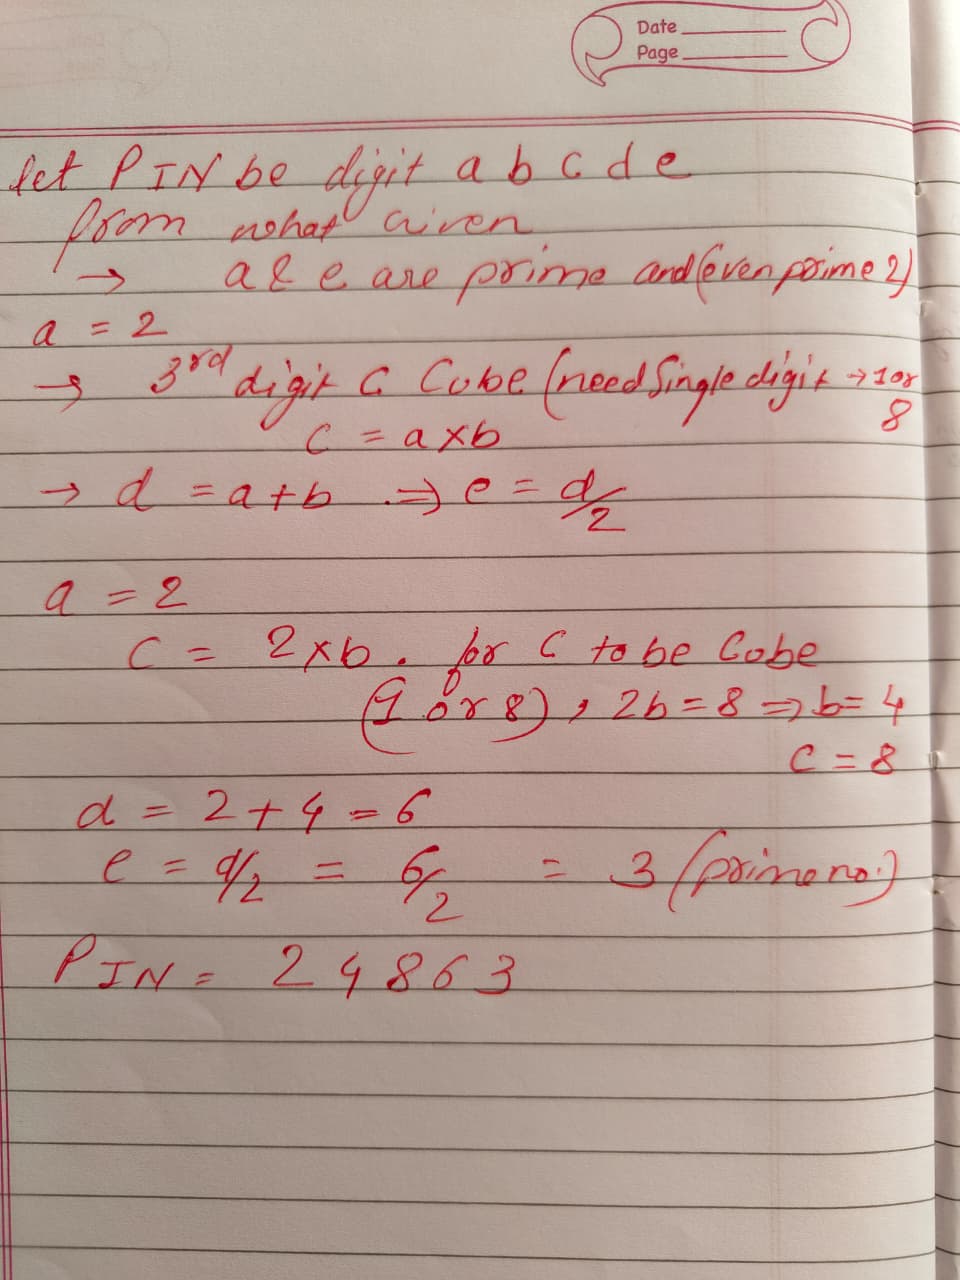 Date
Page
let PIN be digit a b c d e
from what given
→ a & e are prime and (even prime 2)
a = 2
→ 3rd digit C Cube (need Single digit → 1 or
8
C = a x b
→ d = a + b ⇒ e = d/2
a = 2
C = 2 x b . for C to be Cobe
(1 or 8) , 2b = 8 ⇒ b = 4
C = 8
d = 2 + 4 = 6
e = d/2 = 6/2 = 3 (prime no.)
PIN = 24863